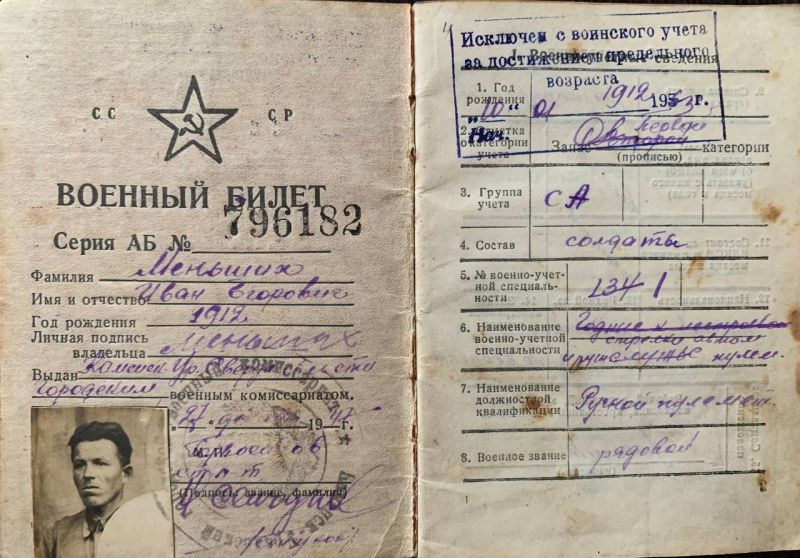 СС СР
ВОЕННЫЙ БИЛЕТ
Серия АБ № 796182
Фамилия Меньших
Имя и отчество Иван Егорович
Год рождения 1912
Личная подпись
владельца Меньших
Выдан Каменск-Ур. Свердл. области
городским военным комиссариатом.
19 г.
М. П.
(Подпись, звание, фамилия)
Исключен с воинского учета
за достижением предельного
возраста
"10" 01 1963 г.
Нач.
1. Год
рождения 1912
2. Отметка
о категории
учета
Запас категории
(прописью)
3. Группа
учета СА
4. Состав солдаты
5. № военно-учет-
ной специаль-
ности 134
6. Наименование
военно-учетной
специальности
7. Наименование
должностной
квалификации Ручной пулемет.
8. Военное звание рядовой
1